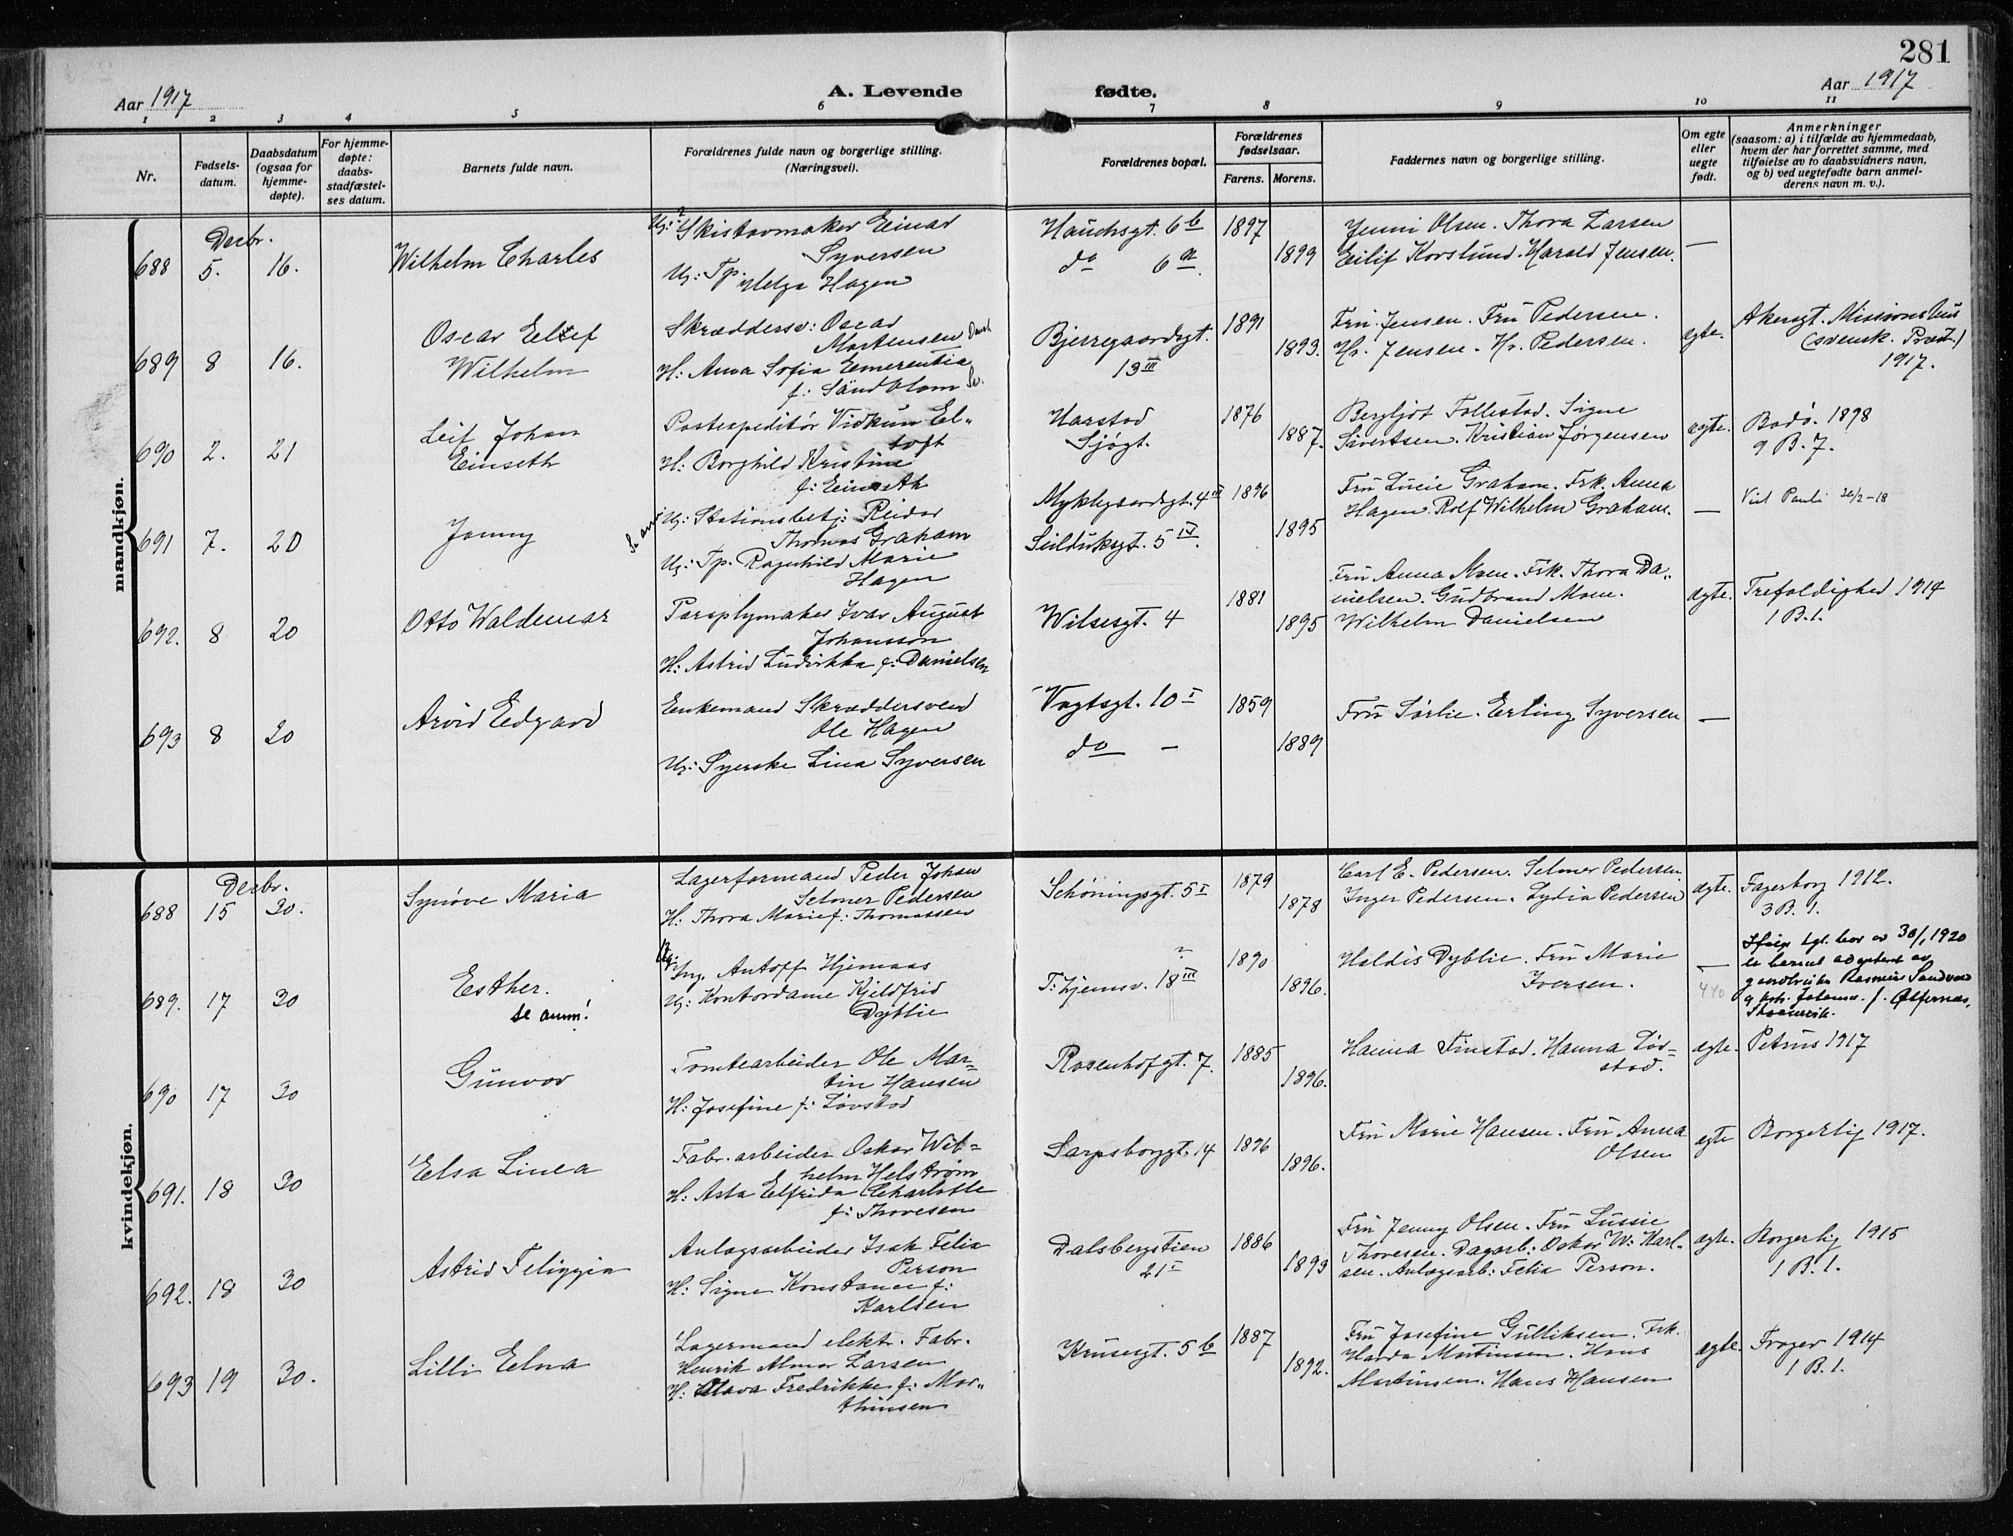 281
Aar 1917 A. Levende fødte. Aar 1917
1 2 3 4 5 6 7 8 9 10 11
Nr.
Fødsels-
datum.
Daabsdatum
(ogsaa for
hjemme-
døpte).
For hjemme-
døpte:
daabs-
stadfæstel-
ses datum.
Barnets fulde navn.
Forældrenes fulde navn og borgerlige stilling.
(Næringsvei).
Forældrenes bopæl.
Forældrenes
fødselsaar.
Farens. Morens.
Faddernes navn og borgerlige stilling.
Om egte
eller
uegte
født.
Anmerkninger
(saasom: a) i tilfælde av hjemmedaab,
hvem der har forrettet samme, med
tilføielse av to daabsvidners navn,
og b) ved uegtefødte barn anmel-
derens navn m. v.).
mandkjøn.
Decbr.
688 5. 16. Wilhelm Charles
Ug: Skistavmaker Einar
Syversen
Ug: Tp. Helga Hagen
Hauchsgt. 6 b
do 6 a.
1897
1899
Jenni Olsen. Thora Larsen
Eilif Korslund. Harald Jensen.
—
689 8 16. Oscar
Wilhelm
Skræddersv: Oscar
Mortensen Dansk
H: Anna Sofia Emerentia
f: Sandblom Sv.
Bjerregaardsgt.
13 III
1891
1893.
Fru Jensen. Fru Pedersen.
Hr. Jensen. Hr. Pedersen.
egte.
Akersgt. Missionshus
(svensk. Præst.)
1917.
690 2. 21 Leif Johan
Einseth
Postexpeditør Vidkun El-
toft
H: Borghild Kristine
f: Einseth
Harstad
Sjøgt.
1876
1887.
Bergljot Follestad. Signe
Sivertsen. Kristian Jørgensen
egte.
Bodø. 1898
9 B. 7.
691 7. 20 Jonny
Se anm
Ug: Stationsbetj: Reidar
Thomas Graham
Ug: Tp. Ragnhild Marie
Hagen
Myklegaardsgt. 4 III
Seilduksgt. 5 IV.
1896
1895
Fru Lucie Graham. Frk. Anna
Hagen. Rolf Wilhelm Graham.
—
692. 8 20 Otto Waldemar
Paraplymaker Ivar August
Johansson
H: Astrid Ludvikka f: Danielsen
Wilsesgt. 4
1881
1895
Fru Anna Moen. Frk. Thora Da-
nielsen. Gudbrand Moen.
Wilhelm Danielsen
egte.
Trefoldighed 1914
1 B. 1.
693 8 20 Arvid Edgard
Enkemand Skræddersvend
Ole Hagen
Ug: Syerske Lina Syversen
Vogtsgt. 10 I
do —
1859
1889
Fru Sørlie. Erling Syversen
—
kvindekjøn.
Decbr.
688 15 30. Synøve Maria
Lagerformand Peder Johan
Selmer Pedersen
H: Thora Marie f: Thomassen
Schøningsgt. 5 I
1879
1878
Carl E. Pedersen. Selmer Pedersen.
Inger Pedersen. Lydia Pedersen
egte.
Fagerborg 1912.
3 B. 1.
689. 17 30 Esther.
se anm!
Ug: Ing. Antoff Hjemaas
Ug: Kontordame Kjeldfrid
Dyblie
?
T: hjemsv. 18 III
1890
1896.
Haldis Dyblie. Fru Marie
Iversen.
—
690 17 30 Gunvor
Tomtearbeider Ole Mar-
tin Hansen
H: Josefine f: Løvstad
Rosenhofgt. 7.
1885
1896.
Hanna Finstad. Hanna Løv-
stad.
egte.
Petrus 1917
691. 18 30 Elsa Linea
Fabr. arbeider Oskar Wil-
helm Helstrøm
H: Asta Elfrida Charlotte
f: Thoresen
Sarpsborggt. 14
1896
1896.
Fru Marie Hansen. Fru Anna
Olsen
egte
Borgerlig 1917.
692. 18 30 Astrid
Anlægsarbeider Isak Felix
Person
H: Signe Konstance f:
Karlsen
Dalsbergstien
21 I
1886
1893
Fru Jenny Olsen. Fru Lussie
Thoresen. Dagarb: Oskar W: Karl-
sen. Anlægsarb: Felix Person.
egte.
Borgerlig 1915
1 B. 1.
693 19 30. Lilli Edna
Lagermand elekt. Fabr.
Henrik Almar Larsen
H: Olava Fredrikke f: Mar-
thinsen
Krusesgt. 5 b
1887
1892.
Fru Josefine Gulliksen. Frk.
Harda Martinsen. Hans
Martinsen. Hans Hansen
egte.
Frogner 1914
1 B. 1.